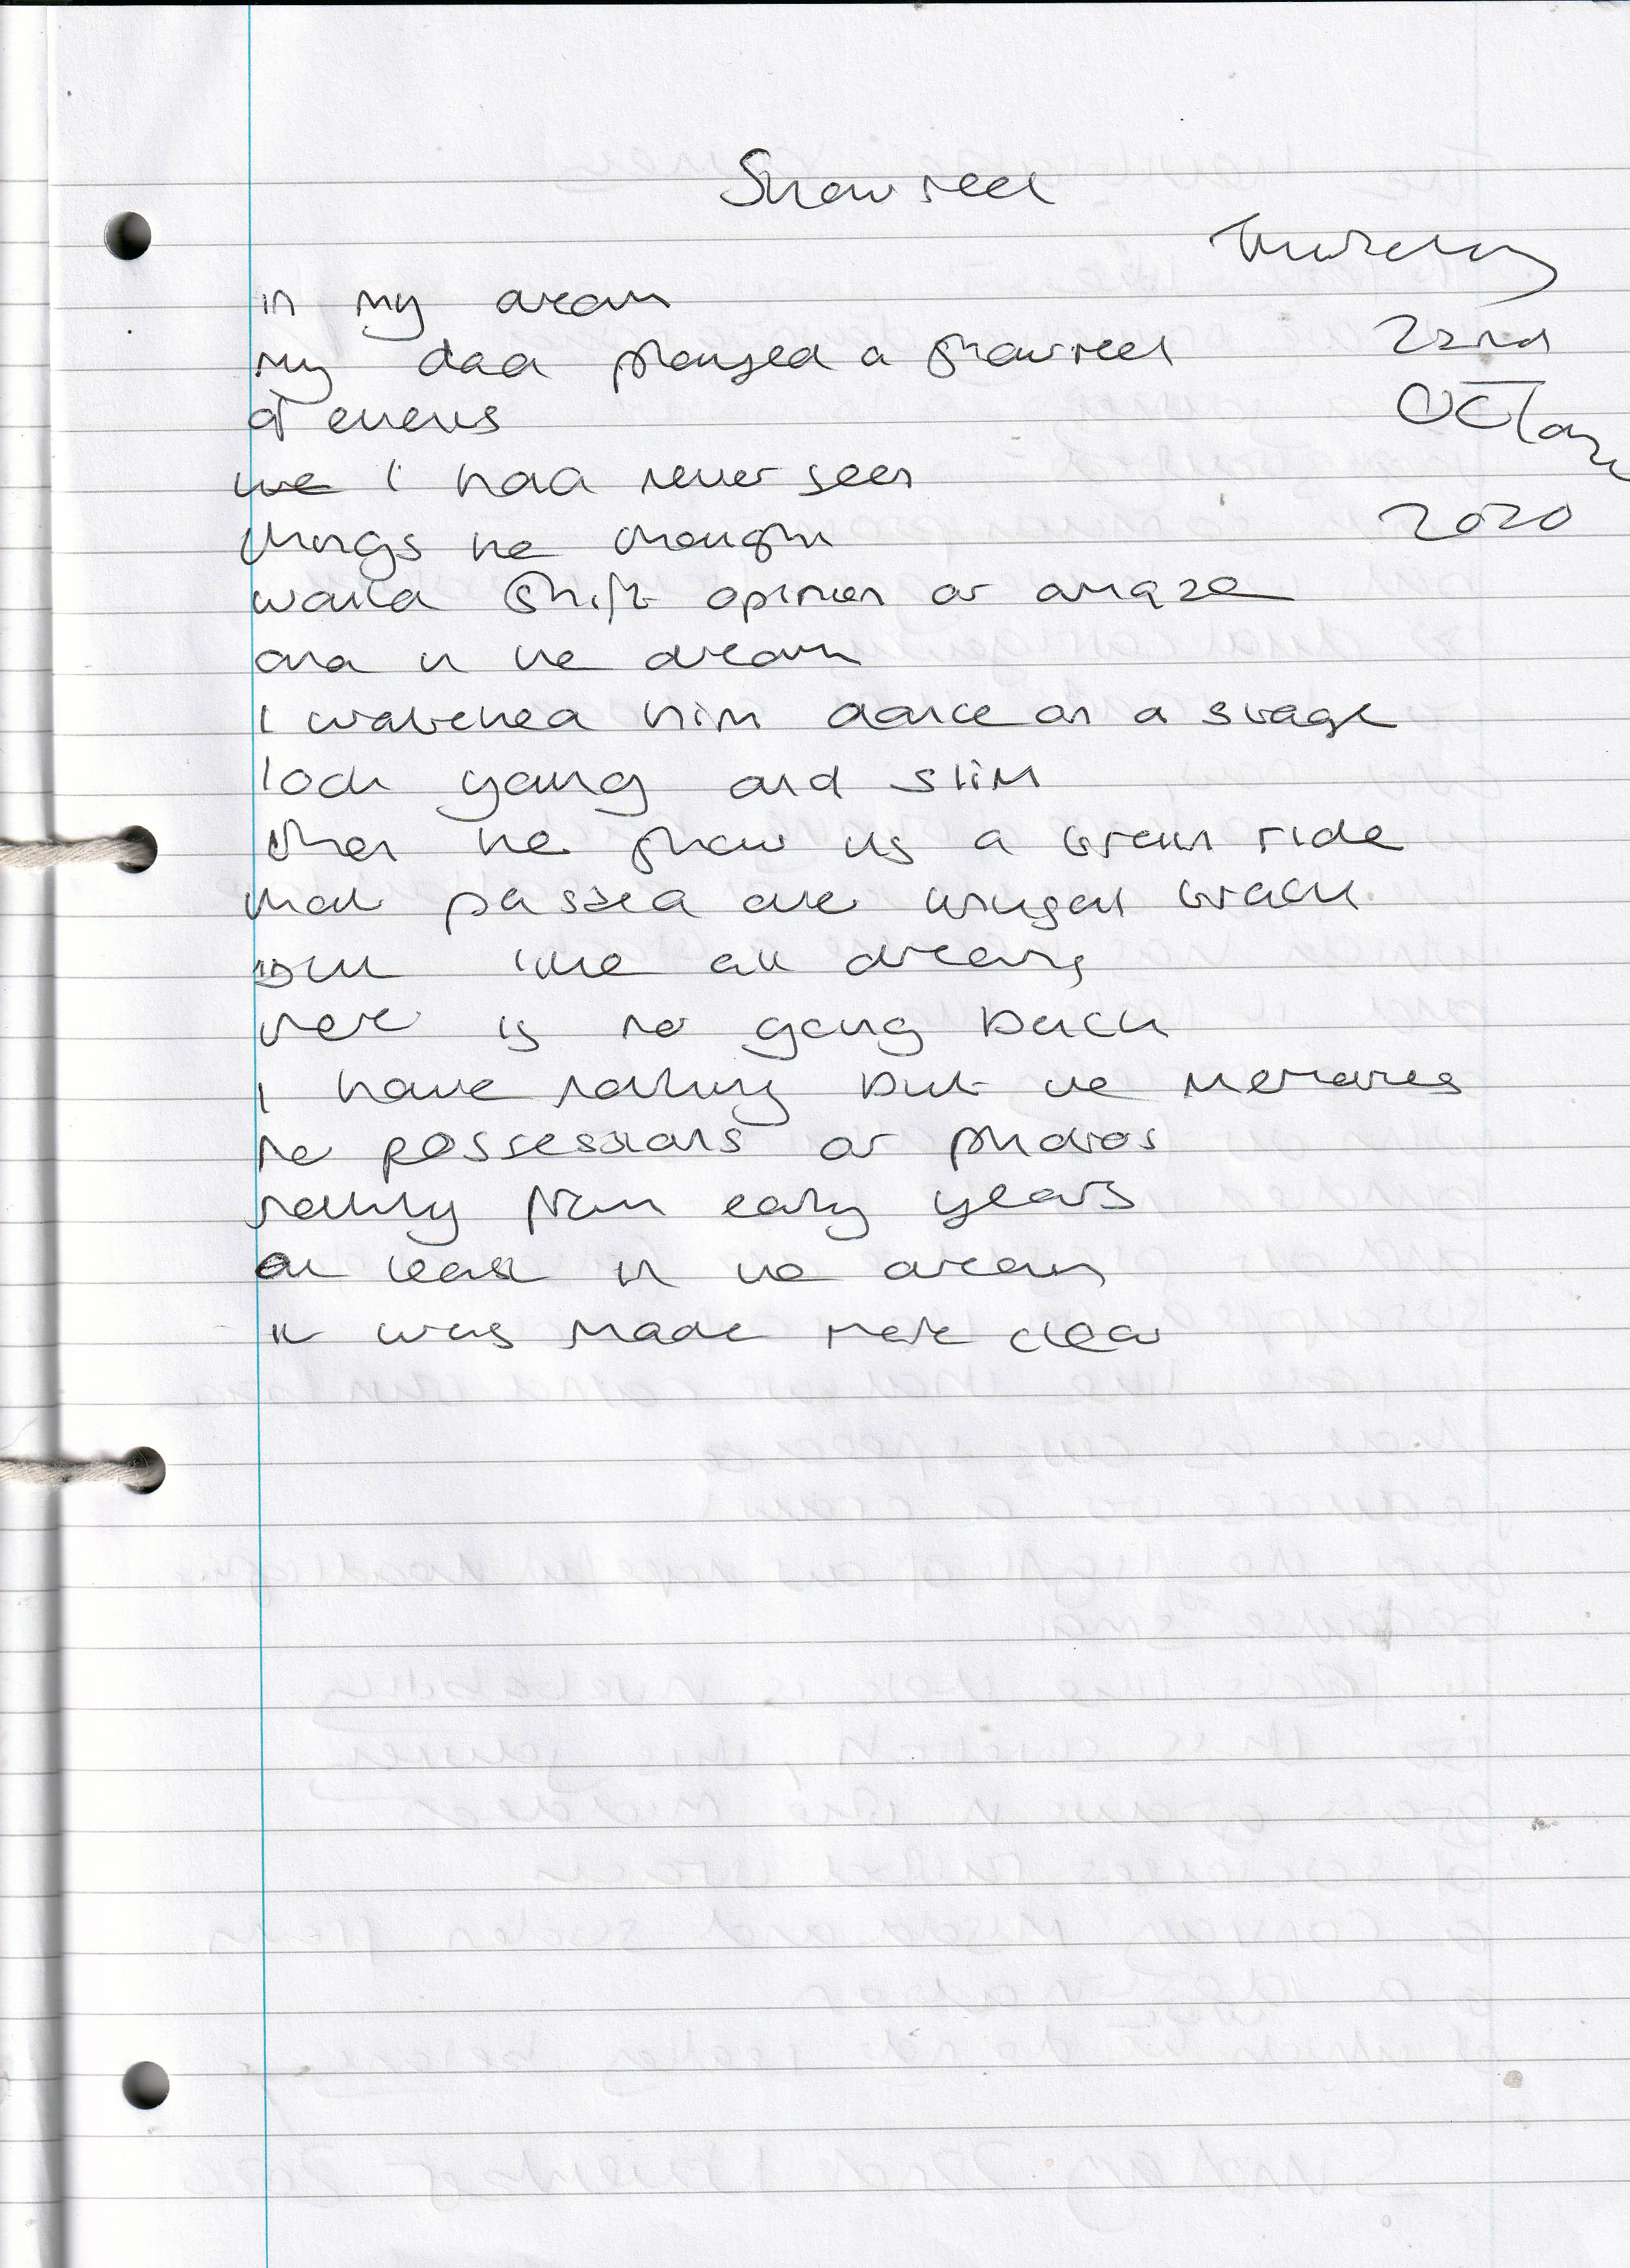 Showreel
Thursday
22nd
October
2020
in my dream
my dad played a showreel
of events
we I had never seen
things he thought
would shift opinion or amaze
and in the dream
I watched him dance on a stage
look young and slim
then he show us a train ride
that passed over track
but like all dreams
there is no going back
I have nothing but the memories
no possessions or photos
nothing from early years
at least in the dream
it was made more clear